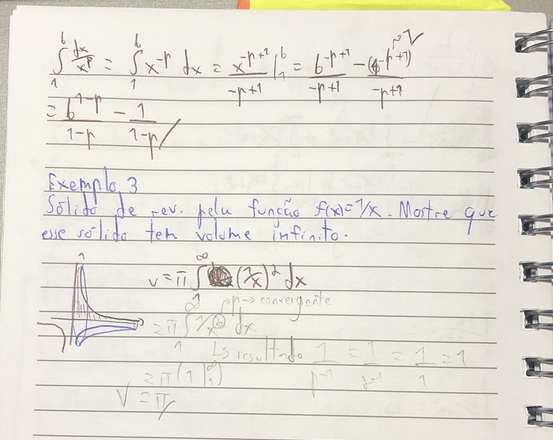 ∫₁ᵇ dx/xᵖ = ∫₁ᵇ x⁻ᵖ dx = x⁻ᵖ⁺¹/-p+1 |₁ᵇ = b⁻ᵖ⁺¹/-p+1 - (1⁻ᵖ⁺¹)/-p+1
= b¹⁻ᵖ/1-p - 1/1-p
Exemplo 3
Sólido de rev. pela função f(x)=1/x. Mostre que
esse sólido tem volume infinito.
1
v = π ∫₁^∞ (1/x)² dx
p → convergente
= π ∫₁^∞ 1/x² dx
↳ resultado 1/p-1 = 1/2-1 = 1/1 = 1
= π (1 |₁^∞)
V = π